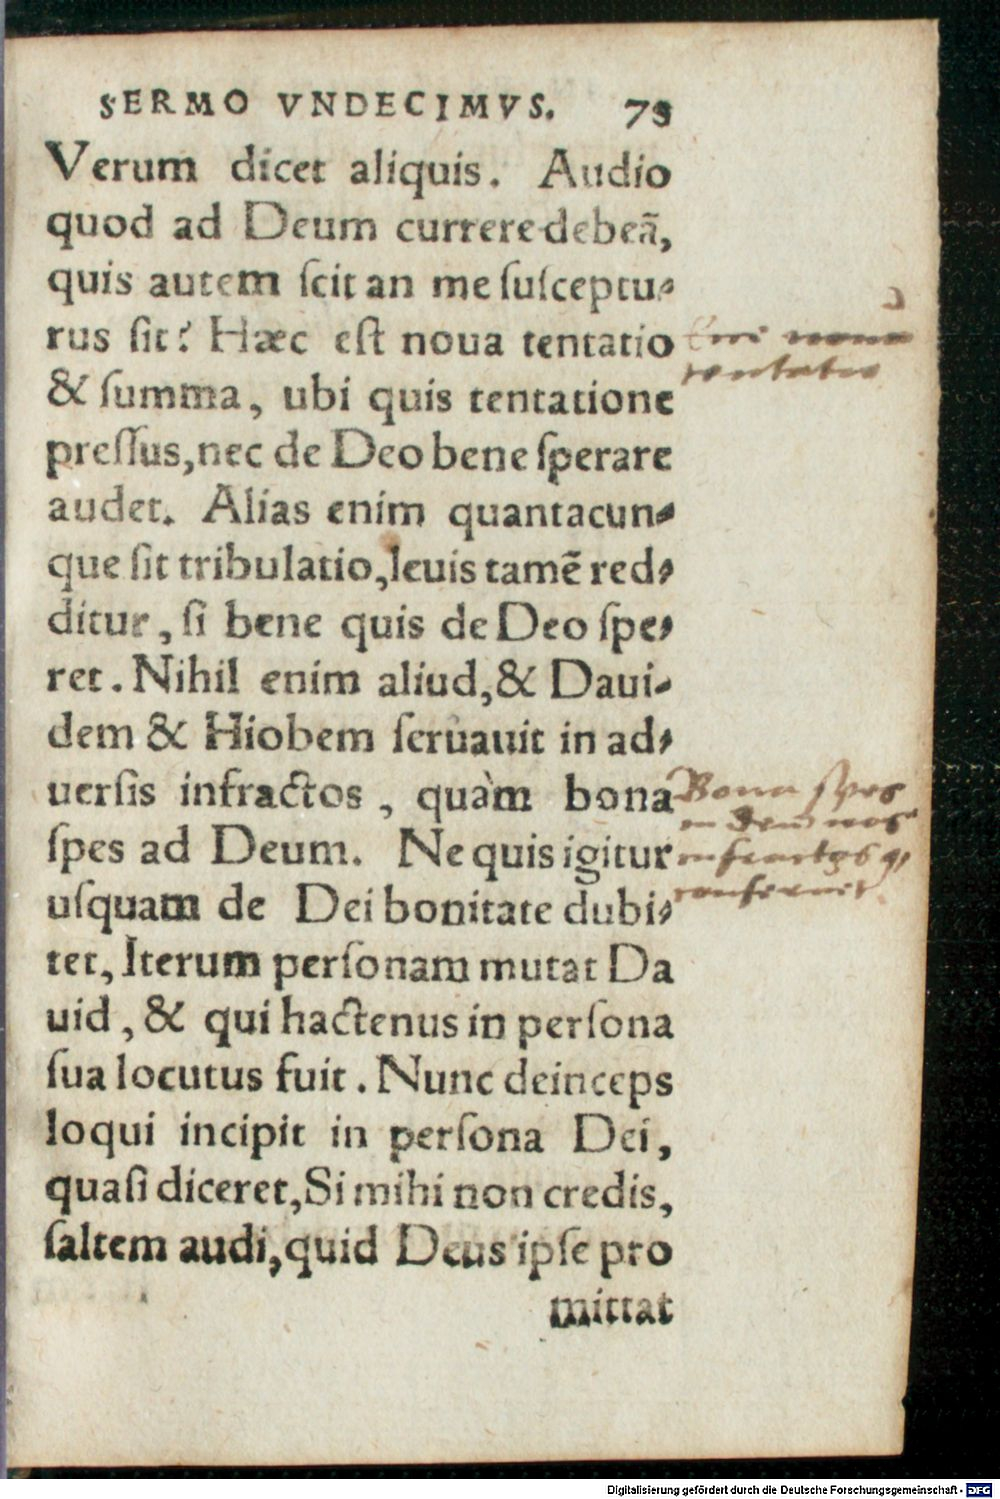 SERMO VNDECIMVS. 73
Verum dicet aliquis. Audio
quod ad Deum currere debeã,
quis autem ſcit an me ſuſceptu-
rus ſit? Hæc eſt noua tentatio
& ſumma, ubi quis tentatione
preſſus, nec de Deo bene ſperare
audet. Alias enim quantacun-
que ſit tribulatio, leuis tamẽ red-
ditur, ſi bene quis de Deo ſpe-
ret. Nihil enim aliud, & Daui-
dem & Hiobem ſeruauit in ad-
uerſis infractos, quàm bona
ſpes ad Deum. Ne quis igitur
uſquam de Dei bonitate dubi-
tet, Iterum perſonam mutat Da
uid, & qui hactenus in perſona
ſua locutus fuit. Nunc deinceps
loqui incipit in perſona Dei,
quaſi diceret, Si mihi non credis,
ſaltem audi, quid Deus ipſe pro
mittat
tentatio
Bona ſpes
in deũ nos
infractos
conſeruet.
Digitalisierung gefördert durch die Deutsche Forschungsgemeinschaft - DFG